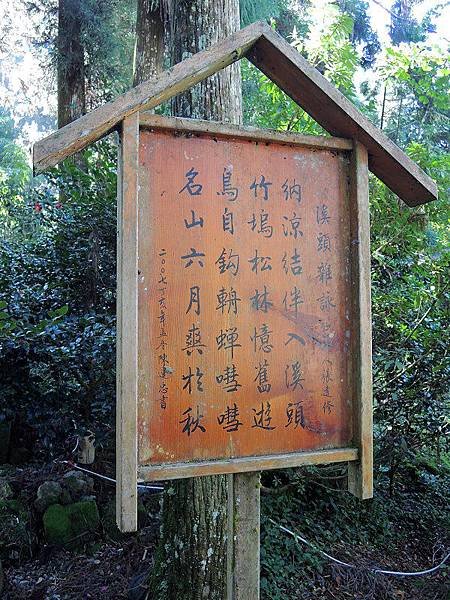 溪頭雜詠 張達修
納涼結伴入溪頭
竹塢松林憶舊遊
鳥自鈎輈蟬嘒嘒
名山六月爽於秋
二００七丁亥年孟冬陳
書